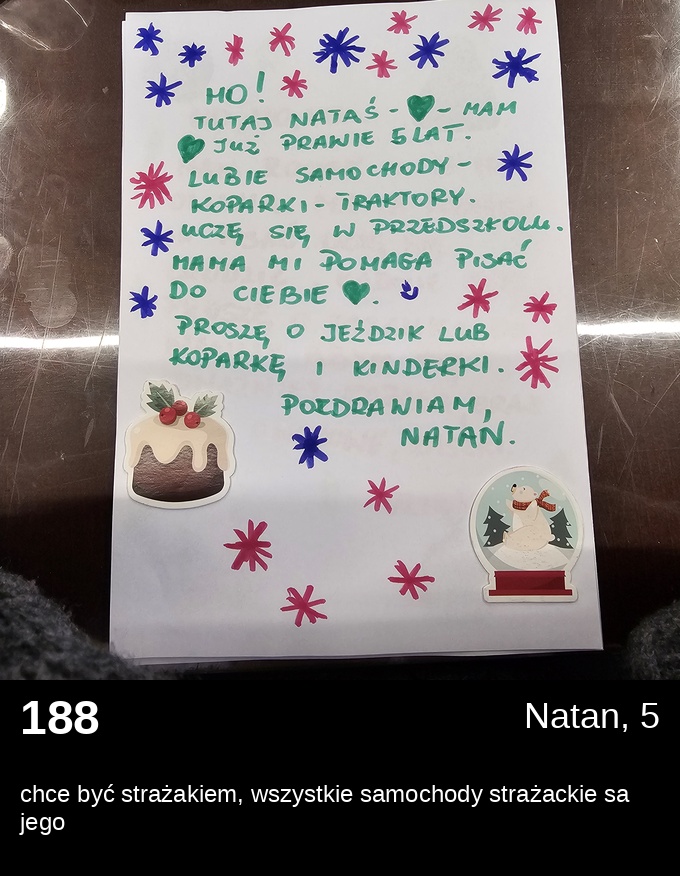 HO!
TUTAJ NATAŚ - - MAM
JUŻ PRAWIE 5 LAT.
LUBIE SAMOCHODY -
KOPARKI - TRAKTORY.
UCZĘ SIĘ W PRZEDSZKOLU.
MAMA MI POMAGA PISAĆ
DO CIEBIE .
PROSZĘ O JEŹDZIK LUB
KOPARKĘ I KINDERKI.
POZDRAWIAM,
NATAN.
188
Natan, 5
chce być strażakiem, wszystkie samochody strażackie sa
jego